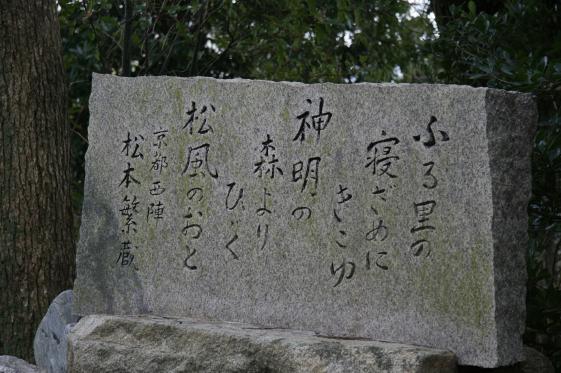 ふる里の
寝ざめに
きこゆ
神明の
森より
ひゞく
松風のおと
京都西陣
松本繁蔵